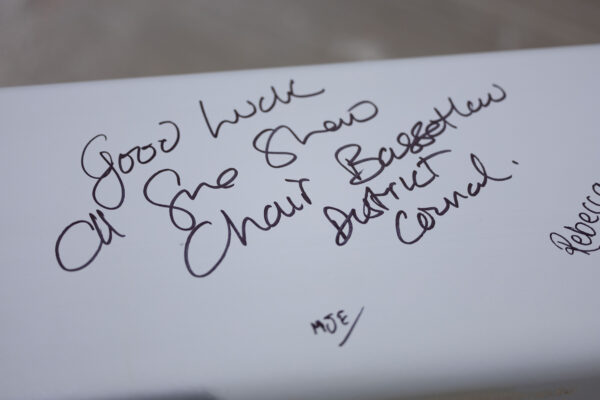 Good Luck
Cll Sue Shaw
Chair Bassetlaw
District
Council.
MJE
Rebecca